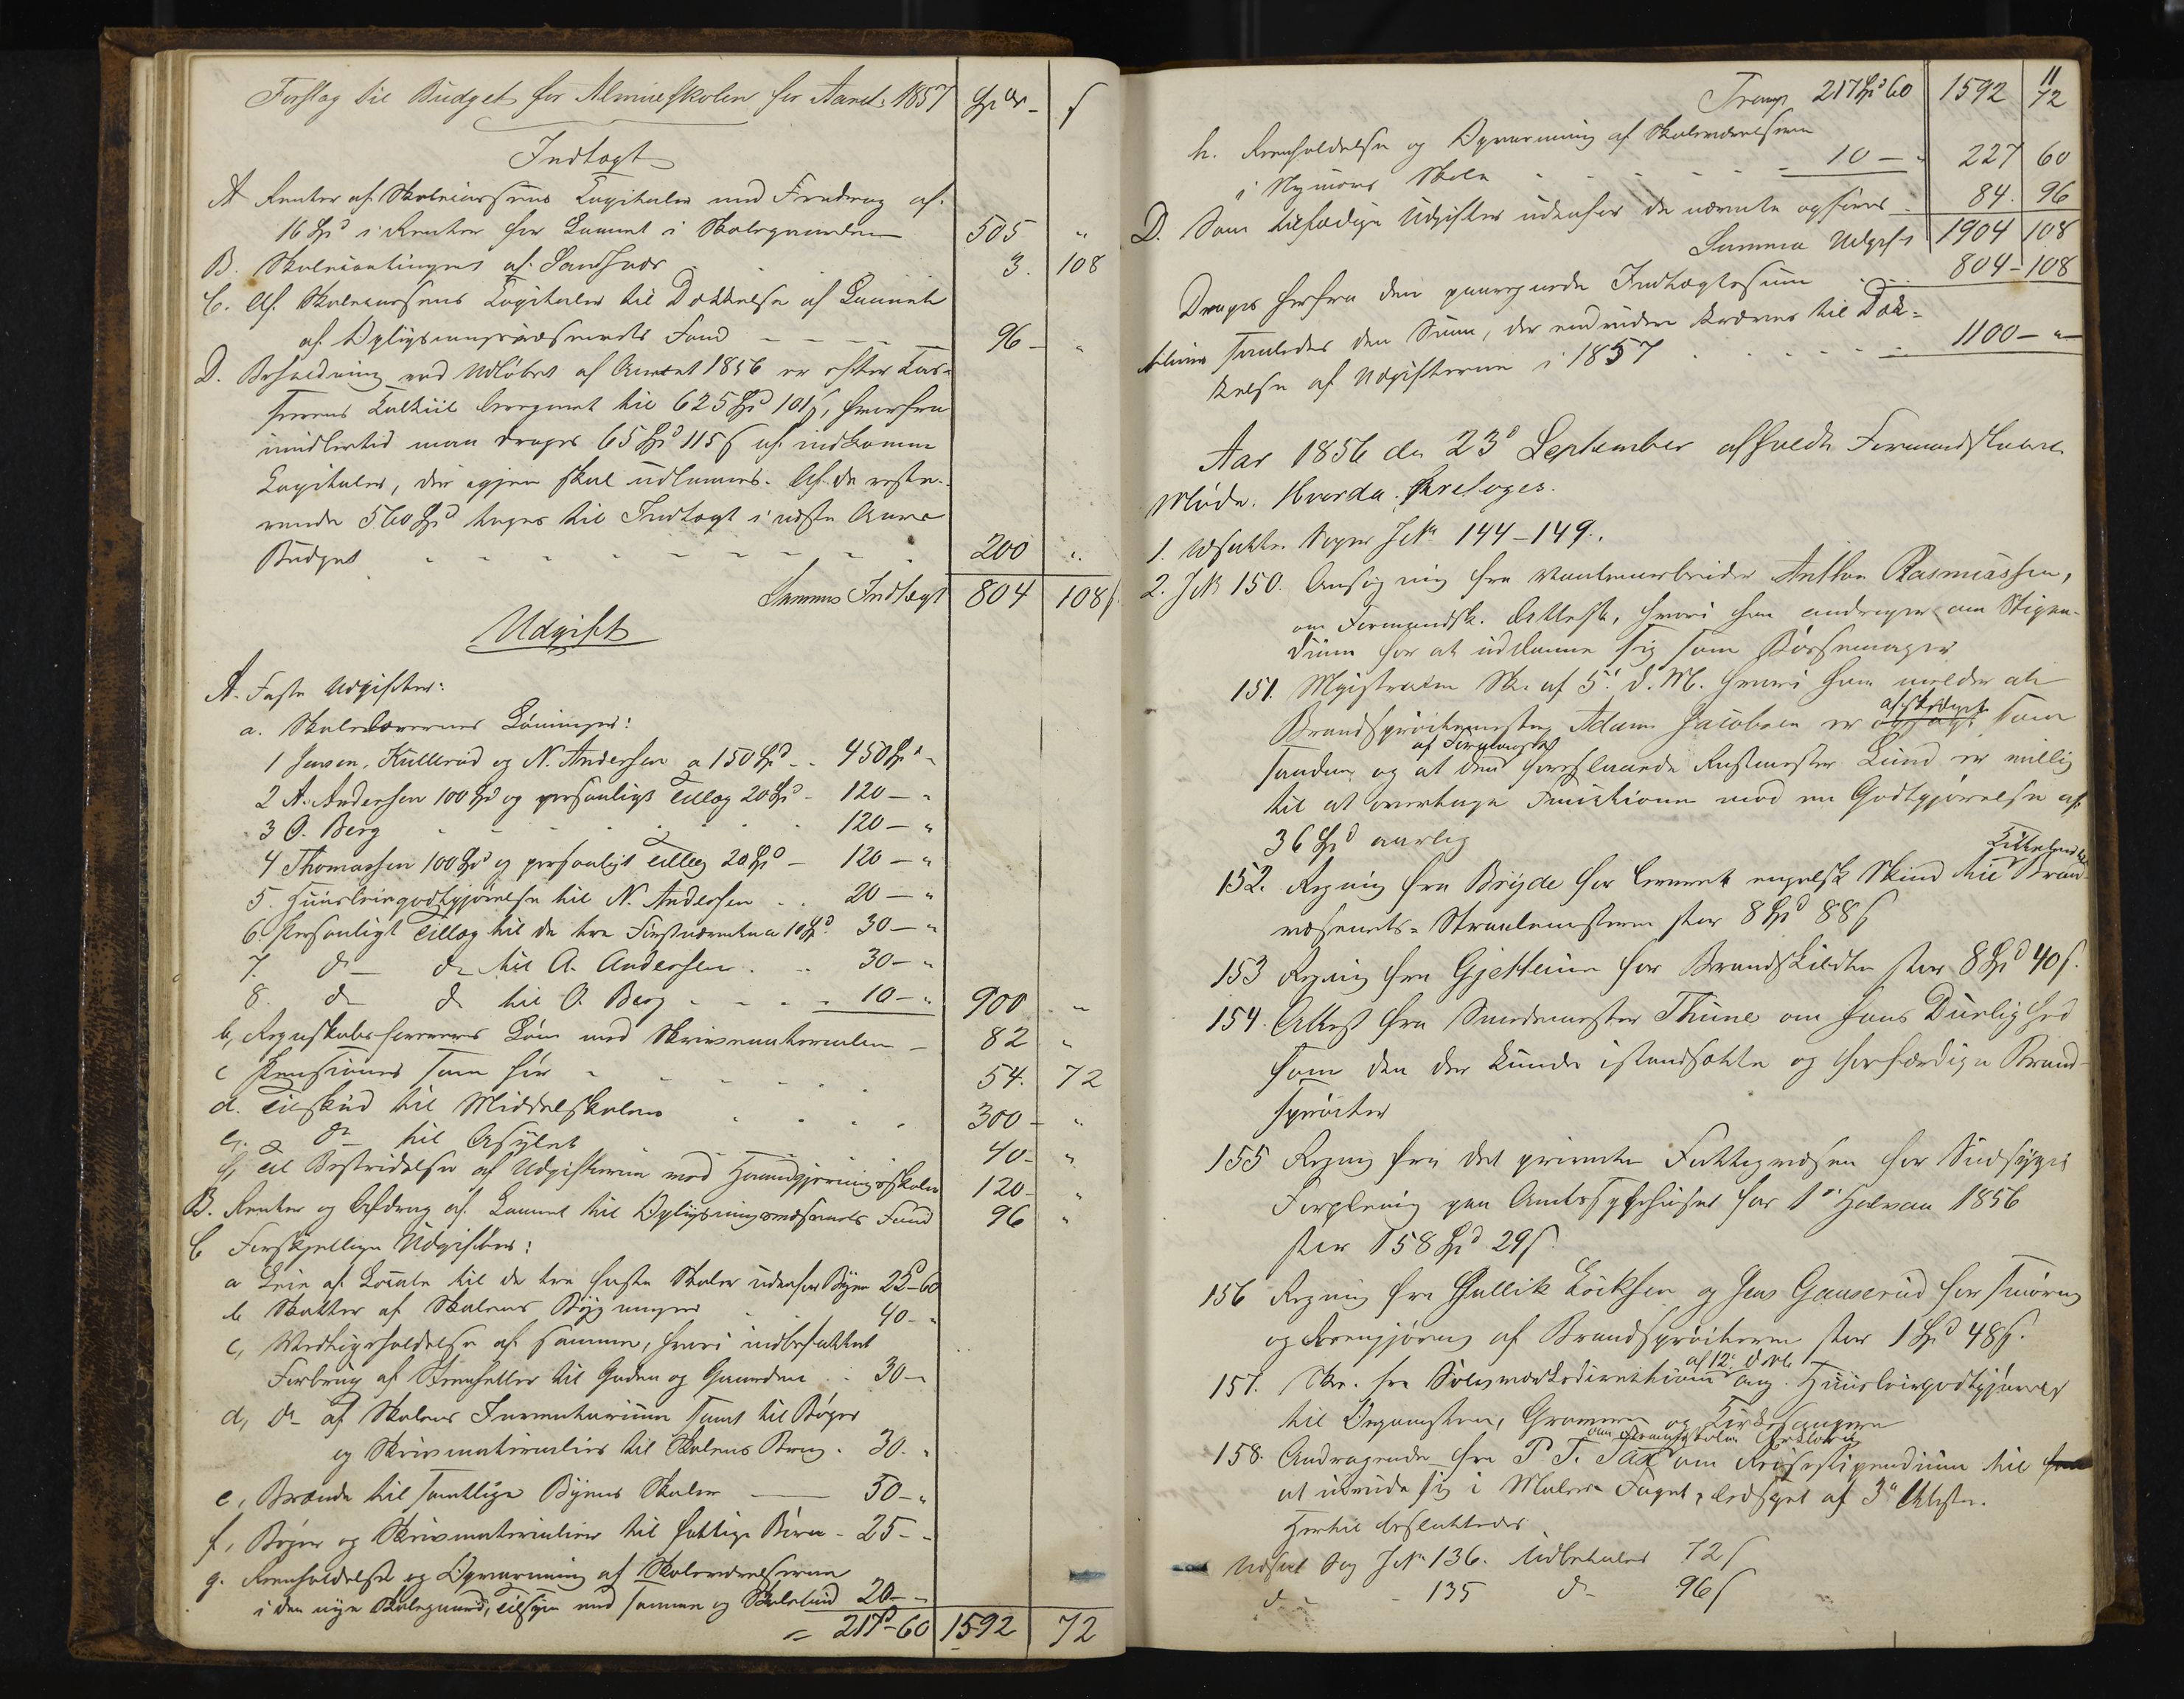 Forslag til Budget for Almueskolen for Aaret 1857 Spdr ß
Indtægt
A Renter af Skolecassens Capitaler med Fradrag af
16 Spd i Renter for Laanet i Skolegaarden 505 "
B. Skolecontingent af Sandsvær 3. 108
C. Af Skolecassens Capitaler til Dækkelse af Laanet
af Oplysningsvæsenets Fond 96 "
D. Beholdning ved Udløbet af Aaret 1856 er efter Cas-
sererens Calkül beregnet til 625 Spd 101 ß, hvorfra
imidlertid maa drages 65 Spd 115 ß af indkomne
Capitaler, der igjen skal udlaanes. Af de reste-
rende 560 Spd tages til Indtægt i næste Aars
Budget 200 "
Summa Indtægt 804 108 ß
Udgift
A. Faste Udgifter:
a. Skolelærernes Lønninger:
1 Jensen, Kullerud og N. Andersen a 150 Spd 450 Spd "
2 A. Andersen 100 Spd og personligt Tillæg 20 Spd 120 – "
3 O. Berg 120 – "
4 Thomassen 100 Spd og personligt Tillæg 20 Spd – 120 – "
5. Huusleiegodtgjørelse til N. Andersen 20 – "
6. Personligt Tillæg til de tre Førstnævnte a 10 Spd 30 – "
7. do do til A. Andersen 30 – "
8. do do til O. Berg 10 – " 900 "
b, Regnskabsførerens Løn med Skrivematerialier 82 "
c Pensioner som før 54. 72
d. Tilskud til Middelskolen 300 "
e, do til Asylet 40 "
f, Til Bestridelse af Udgifterne med Haandgjerningsskolen 120 "
B. Renter og Afdrag af Laanet til Oplysningsvæsenets Fond 96 "
C Forskjellige Udgifter:
a Leie af Locale til de tre faste Skoler udenfor Byen 22–60
b Skatter af Skolens Bygninger 40 – "
c, Vedligeholdelse af samme, heri indbefattet
Forbrug af Steenheller til Gaden og Gaarden 30 –
d, do af Skolens Inventarium samt til Bøger
og Skrivematerialier til Skolens Brug 30 "
e, Brænde til samtlige Byens Skoler 50 – "
f, Bøger og Skrivematerialier til fattige Børn 25 –
g. Reenholdelse og Opvarmning af Skoleværelserne
i den nye Skolegaard, Tilsyn med samme og Skolebud 20 –
217–60 1592 72
11
Transp 217 Spd 60 1592 72
h. Reenholdelse og Opvarmning af Skoleværelserne
i Nymoens Skole 10 – " 227 60
D. Som tilfældige Udgifter udenfor de nævnte opføres 84. 96
Summa Udgift 1904 108
Drages herfra den paaregnede Indtægtssum 804 – 108
bliver saaledes den Sum, der endvidere kræves til Dæk-
kelse af Udgifterne i 1857 1100 – "
Aar 1856 den 23de September afholdt Formandskabet
Møde. Hvorda foretoges.
1. Udsatte Sager JNo 144–149.
2. JNo 150. Ansøgning fra Vaabenarbeider Anthon Rasmussen,
om Formandsk. Attest, hvori han andrager om Stipen-
dium for at uddanne sig som Bøssemager
151. Magistraten Sk. af 5te d. M. hvori han melder at
Brandsprøitemester Adam Jacobsen er afskediget som
saadan og at den af Formandsk foreslaaede Rustmester Lund er villig
til at overtage Functionen mod en Godtgjørelse af
36 Spd aarlig
152. Regning fra Bryde for leveret engelsk Skind til Brand-
væsenets Straalemestere stor 8 Spd 88 ß
153 Regning fra Gjetleim for Brandskildte stor 8 Spd 40 ß.
154. Attest fra Smedemester Thune om hans Duelighed
som den der kunde istandsætte og forfærdige Brand-
sprøiter
155 Regning fra det private Fattigvæsen for Sindsyges
Forpleining paa Amtssygehuset for 1ste Halvaar 1856
stor 158 Spd 29 ß.
156 Regning fra Gullik Eriksen og Jens Gauserud for Smøring
og Reengjøring af Brandsprøiterne stor 1 Spd 48 ß.
157. Skr. fra Sølvværksdirectionen af 12te d M. ang. Huusleiegodtgjørelse
til Organisten, Graveren og Kirkesangeren
158. Andragende fra P. T. Sax om Reisestipendium til
at uddanne sig i Maler Faget, ledsaget af 3de Attester.
Hertil besluttedes
Udsat Sag JNo 136. Udbetales 72 ß
do 135 do 96 ß